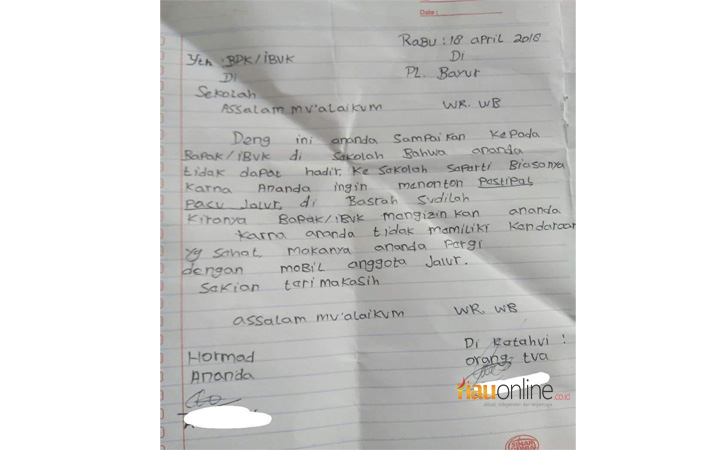 Date :
RaBu : 18 april 2018
Yth : BPK/iBUK
Di
Di
PL. Barut
Sekolah
Assalam mu'alaikum WR. WB
Deng ini ananda Sampaikan kepada
Bapak/iBUK di Sakolah Bahwa ananda
tidak dapat hadir. ke Sakolah Saparti Biasanya
karna Ananda ingin menonton Pastipal
Pacu Jalur. di Basrah Sudilah
Kiranya Bapak/iBUK mangizinkan ananda
karna ananda tidak memiliki Kandaraan
yg Sahat makanya ananda Pargi
dengan moBiL anggota Jalur.
Sakian tarimakasih
assalam mu'alaikum WR. WB
Di Katahui :
orang tua
Hormad
Ananda
riauonline.co.id
SINAR